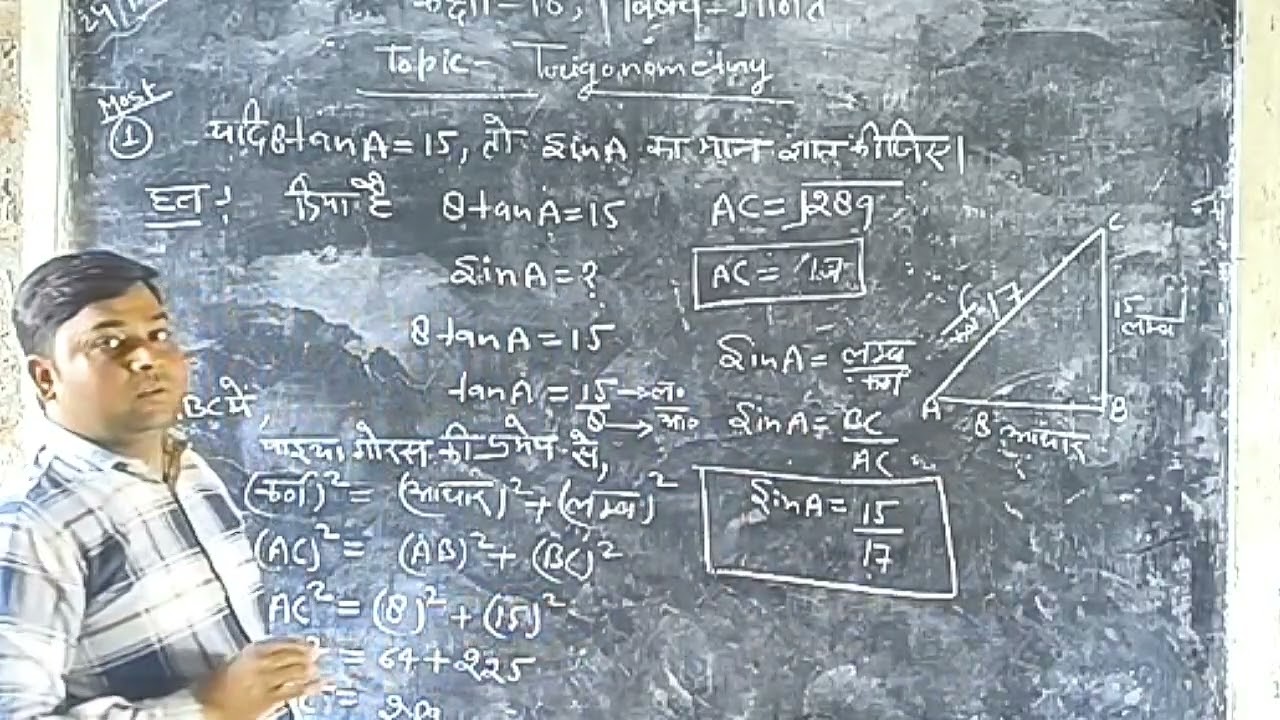 कक्षा-10, विषय-गणित
Topic- Trigonometry
Most
① यदि 8tanA=15, तो sinA का मान ज्ञात कीजिए।
हल: दिया है 8tanA=15
sinA=?
8tanA=15
tanA=15/8 → ल०/आ०
BC में,
पाइथागोरस की प्रमेय से,
(कर्ण)²=(आधार)²+(लम्ब)²
(AC)²=(AB)²+(BC)²
AC²=(8)²+(15)²
=64+225
AC=√289
AC=17
sinA=लम्ब/कर्ण
sinA=BC/AC
sinA=15/17
C
कर्ण 17
15
लम्ब
A
8 आधार
B